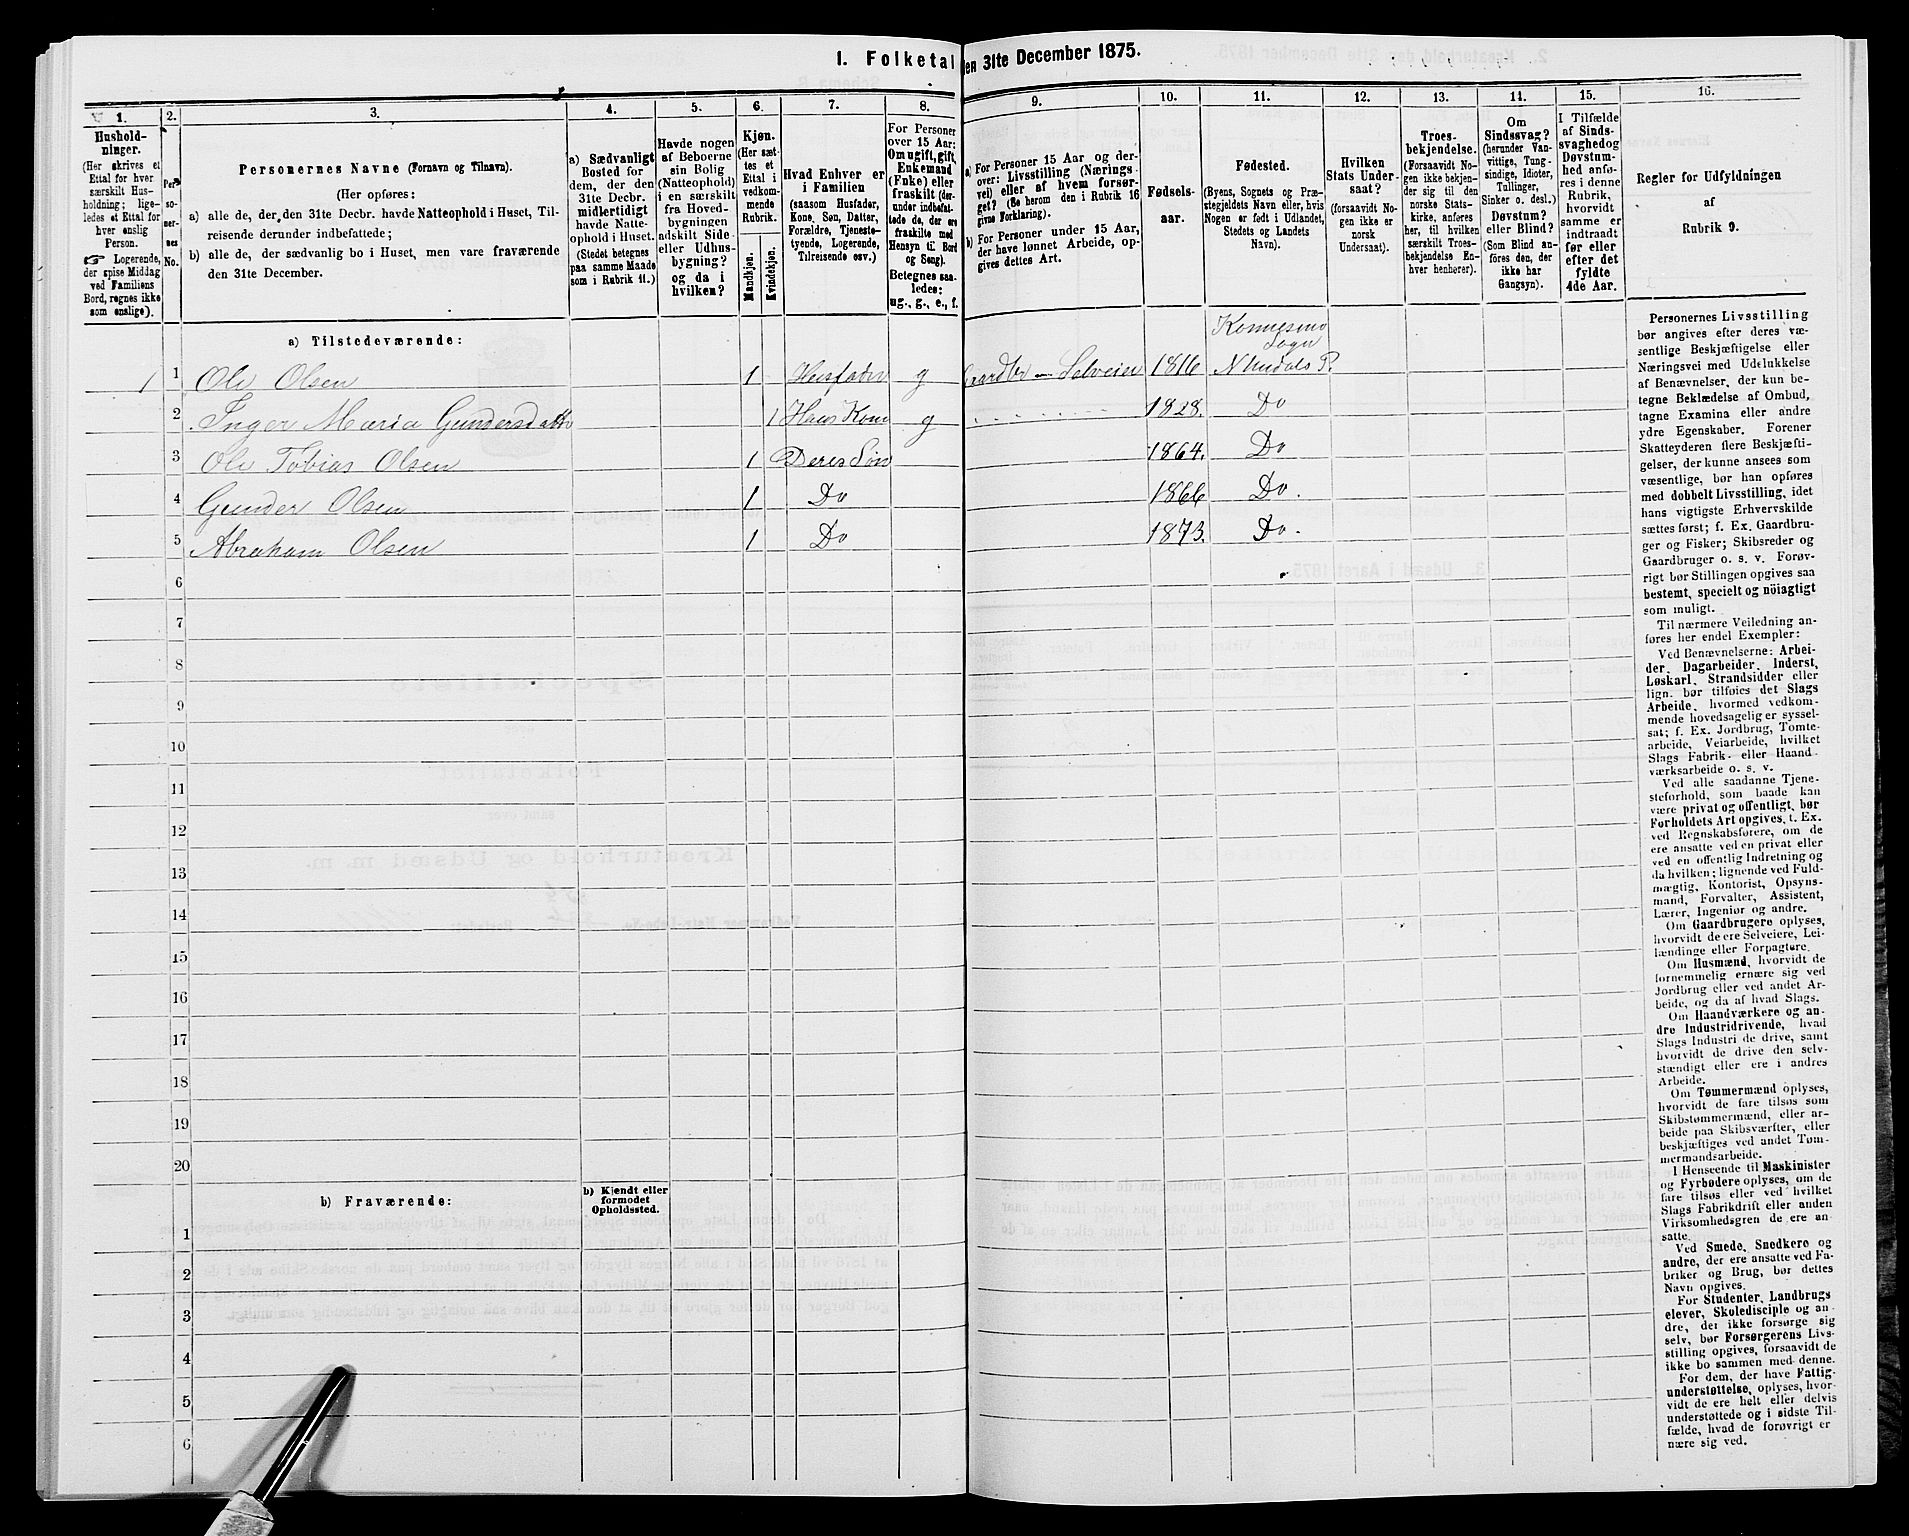 1. Folketal
den 31te December 1875.
1.
Hushold-
ninger.
(Her skrives et
Ettal for hver
særskilt Hus-
holdning; lige-
ledes et Ettal for
hver enslig
Person.
☞ Logerende,
der spise Middag
ved Familiens
Bord, regnes ikke
som enslige).
2.
Per-
so-
ner-
nes
No.
3.
Personernes Navne (Fornavn og Tilnavn).
(Her opføres:
a) alle de, der den 31te Decbr. havde Natteophold i Huset, Til-
reisende derunder indbefattede;
b) alle de, der sædvanlig bo i Huset, men vare fraværende
den 31te December.
4.
a) Sædvanligt
Bosted for
dem, der den
31te Decbr.
midlertidigt
havde Natte-
ophold i Huset.
(Stedet betegnes
paa samme Maade
som i Rubrik 11.)
5.
Havde nogen
af Beboerne
sin Bolig
(Natteophold)
i en særskilt
fra Hoved-
bygningen
adskilt Side-
eller Udhus-
bygning?
og da i
hvilken?
6.
Kjøn.
(Her sæt-
tes et
Ettal i
vedkom-
mende
Rubrik.
Mandkjøn.
Kvindekjøn.
7.
Hvad Enhver er
i Familien
(saasom Husfader,
Kone, Søn, Datter,
Forældre, Tjeneste-
tyende, Logerende,
Tilreisende osv.)
8.
For Personer
over 15 Aar:
Om ugift, gift,
Enkemand
(Enke) eller
fraskilt (der-
under indbefat-
tede de, der ere
fraskilte med
Hensyn til Bord
og Seng).
Betegnes saa-
ledes:
ug., g., e., f.
9.
a) For Personer 15 Aar og der-
over: Livsstilling (Nærings-
vei) eller af hvem forsør-
get? (Se herom den i Rubrik 16
givne Forklaring).
b) For Personer under 15 Aar,
der have lønnet Arbeide, op-
gives dettes Art.
10.
Fødsels-
aar.
11.
Fødested.
(Byens, Sognets og Præ-
stegjeldets Navn eller, hvis
Nogen er født i Udlandet,
Stedets og Landets
Navn).
12.
Hvilken
Stats Under-
saat?
(forsaavidt No-
gen ikke er
norsk
Undersaat).
13.
Troes-
bekjendelse.
(Forsaavidt No-
gen ikke bekjen-
der sig til den
norske Stats-
kirke, anføres
her, til hvilken
særskilt Troes-
bekjendelse En-
hver henhører).
14.
Om
Sindssvag?
(herunder Van-
vittige, Tung-
sindige, Idioter,
Tullinger,
Sinker o. desl.)
Døvstum?
eller Blind?
(Som Blind an-
føres den, der
ikke har
Gangsyn).
15.
I Tilfælde
af Sinds-
svaghed og
Døvstum-
hed anfø-
res i denne
Rubrik,
hvorvidt
samme er
indtraadt
før eller
efter det
fyldte
4de Aar.
16.
Regler for Udfyldningen
af
Rubrik 9.
a) Tilstedeværende:
1 1 Ole Olsen 1 Husfader g Gaardbr - Selveier 1816
Sogn
2 Inger Maria Gundersdatter 1 Hans Kone g 1828. Do
3 Ole Tobias Olsen 1 Deres Søn 1864. Do
4 Gunder Olsen 1 Do 1866 Do.
5 Abraham Olsen 1 Do 1873. Do.
6
7
8
9
10
11
12
13
14
15
16
17
18
19
20
b) Fraværende:
b) Kjendt eller
formodet
Opholdssted.
1
2
3
4
5
6
Personernes Livsstilling
bør angives efter deres væ-
sentlige Beskjæftigelse eller
Næringsvei med Udelukkelse
af Benævnelser, der kun be-
tegne Beklædelse af Ombud,
tagne Examina eller andre
ydre Egenskaber. Forener
Skatteyderen flere Beskjæfti-
gelser, der kunne ansees som
væsentlige, bør han opføres
med dobbelt Livsstilling, idet
hans vigtigste Erhvervskilde
sættes først; f. Ex. Gaardbru-
ger og Fisker; Skibsreder og
Gaardbruger o. s. v. Forøv-
rigt bør Stillingen opgives saa
bestemt, specielt og nöiagtigt
som muligt.
Til nærmere Veiledning an-
føres her endel Exempler:
Ved Benævnelserne: Arbei-
der, Dagarbeider, Inderst,
Løskarl, Strandsidder eller
lign. bør tilføies det Slags
Arbeide, hvormed vedkom-
mende hovedsagelig er syssel-
sat; f. Ex. Jordbrug, Tomte-
arbeide, Veiarbeide, hvilket
Slags Fabrik- eller Haand-
værksarbeide o. s. v.
Ved alle saadanne Tjene-
steforhold, som baade kan
være privat og offentligt, bør
Forholdets Art opgives, t. Ex.
ved Regnskabsførere, om de
ere ansatte ved en privat eller
ved en offentlig Indretning og
da hvilken; lignende ved Fuld-
mægtig, Kontorist, Opsyns-
mand, Forvalter, Assistent,
Lærer, Ingeniør og andre.
Om Gaardbrugere oplyses,
hvorvidt de ere Selveiere, Lei-
lændinge eller Forpagtere.
Om Husmænd, hvorvidt de
fornemmelig ernære sig ved
Jordbrug eller ved andet Ar-
beide, og da af hvad Slags.
Om Haandværkere og an-
dre Industridrivende, hvad
Slags Industri de drive, samt
hvorvidt de drive den selv-
stændigt eller ere i andres
Arbeide.
Om Tømmermænd oplyses,
hvorvidt de fare tilsøs som
Skibstømmermænd, eller ar-
beide paa Skibsværfter, eller
beskjæftiges ved andet Tøm-
mermandsarbeide.
I Henseende til Maskinister
og Fyrbødere oplyses, om de
fare tilsøs eller ved hvilket
Slags Fabrikdrift eller anden
Virksomhedsgren de ere an-
satte.
Ved Smede, Snedkere og
andre, der ere ansatte ved Fa-
briker og Brug, bør dettes
Navn opgives.
For Studenter, Landbrugs-
elever, Skoledisciple og an-
dre, der ikke forsørge sig
selv, bør Forsørgerens Livs-
stilling opgives, forsaavidt de
ikke bo sammen med denne.
For dem, der have Fattig-
understøttelse, oplyses, hvor-
vidt de ere helt eller delvis
understøttede og i sidste Til-
fælde, hvad de forøvrigt er
nære sig ved.